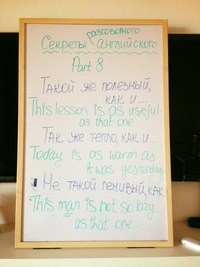 разговорного
Секреты английского
Part 8
Такой же полезный,
как и...
This lesson is as useful
as that one.
Так же тепло, как и...
Today is as warm as
it was yesterday.
Не такой ленивый, как
This man is not so lazy
as that one